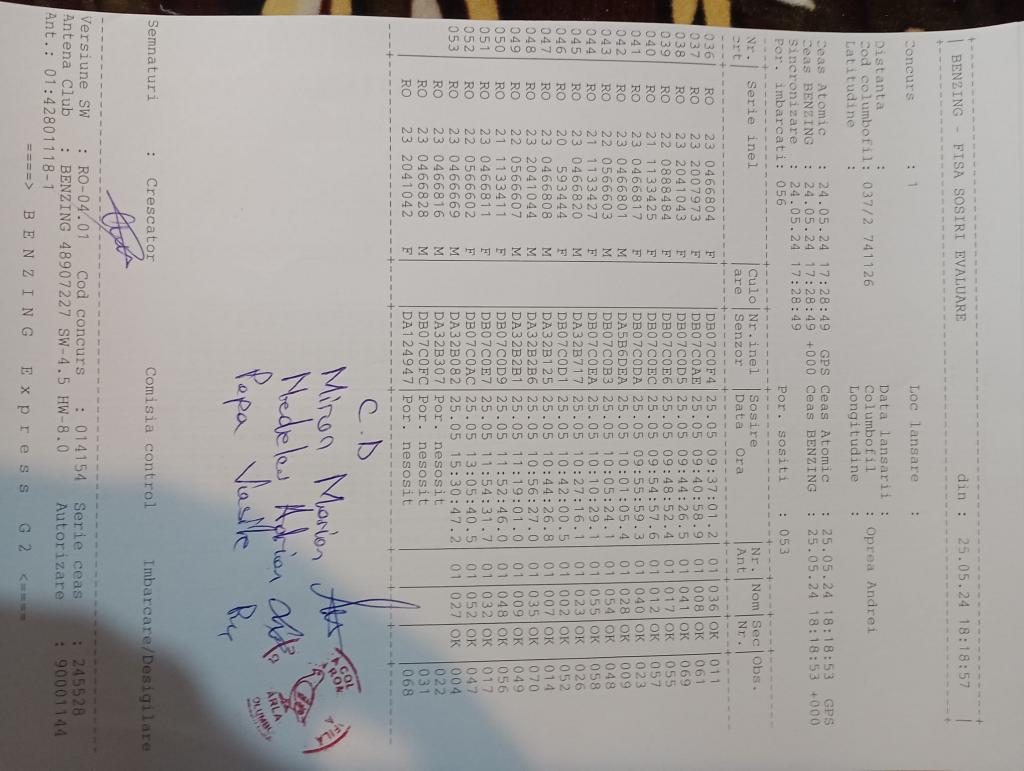 BENZING - FISA SOSIRI EVALUARE din : 25.05.24 18:18:57
Concurs : 1 Loc lansare :
Distanta : Data lansarii :
Cod columbofil: 037/2 741126 Columbofil : Oprea Andrei
Latitudine : Longitudine :
Ceas Atomic : 24.05.24 17:28:49 GPS Ceas Atomic : 25.05.24 18:18:53 GPS
Ceas BENZING : 24.05.24 17:28:49 +000 Ceas BENZING : 25.05.24 18:18:53 +000
Sincronizare : 24.05.24 17:28:49
Por. imbarcati: 056 Por. sositi : 053
Nr. Serie inel Culo Nr.inel Sosire Nr. Nom Sec Obs.
crt are Senzor Data Ora Ant Nr.
036 RO 23 0466804 F DB07C0F4 25.05 09:37:01.2 01 036 OK 011
037 RO 23 2007973 F DB07CAE 25.05 09:40:58.9 01 008 OK 061
038 RO 23 2041043 F DB07C0D5 25.05 09:44:26.5 01 041 OK 069
039 RO 22 0888484 F DB07C0E6 25.05 09:48:52.4 01 017 OK 055
040 RO 21 1133425 F DB07C0EC 25.05 09:54:57.6 01 012 OK 057
041 RO 23 0466817 F DB07C0DA 25.05 09:55:59.3 01 040 OK 023
042 RO 23 0466801 M DA5B6DEA 25.05 10:01:05.4 01 028 OK 009
043 RO 22 0566603 M DB07C0B3 25.05 10:05:24.1 01 054 OK 048
044 RO 21 1133427 F DB07C0EA 25.05 10:10:29.1 01 055 OK 058
045 RO 23 0466820 M DA32B717 25.05 10:27:16.1 01 023 OK 026
046 RO 20 593444 F DB07C0D1 25.05 10:42:00.5 01 002 OK 052
047 RO 23 0466808 M DA32B125 25.05 10:44:26.8 01 007 OK 014
048 RO 23 2041044 M DA32B2B6 25.05 10:56:27.0 01 035 OK 070
049 RO 22 0566607 M DA32B2B1 25.05 11:19:01.0 01 009 OK 049
050 RO 21 1133411 F DB07C0D9 25.05 11:52:46.0 01 048 OK 056
051 RO 23 0466811 F DB07C0E7 25.05 11:54:31.7 01 032 OK 017
052 RO 22 0566602 F DB07C0AC 25.05 13:05:40.5 01 052 OK 047
053 RO 23 0466669 M DA32B082 25.05 15:30:47.2 01 027 OK 004
RO 23 0466816 M DA32B307 Por. nesosit 022
RO 23 0466828 M DB07C0FC Por. nesosit 031
RO 23 2041042 F DA124947 Por. nesosit 068
C.D
Miron Marian
Nedelea Adrian
Popa Vasile
Semnaturi : Crescator Comisia control Imbarcare/Desigilare
Versiune SW : RO-04.01 Cod concurs : 014154 Serie ceas : 245528
Antena Club : BENZING 48907227 SW-4.5 HW-8.0 Autorizare : 90001144
Ant.: 01:42801118-1
====> BENZING Express G2 <====